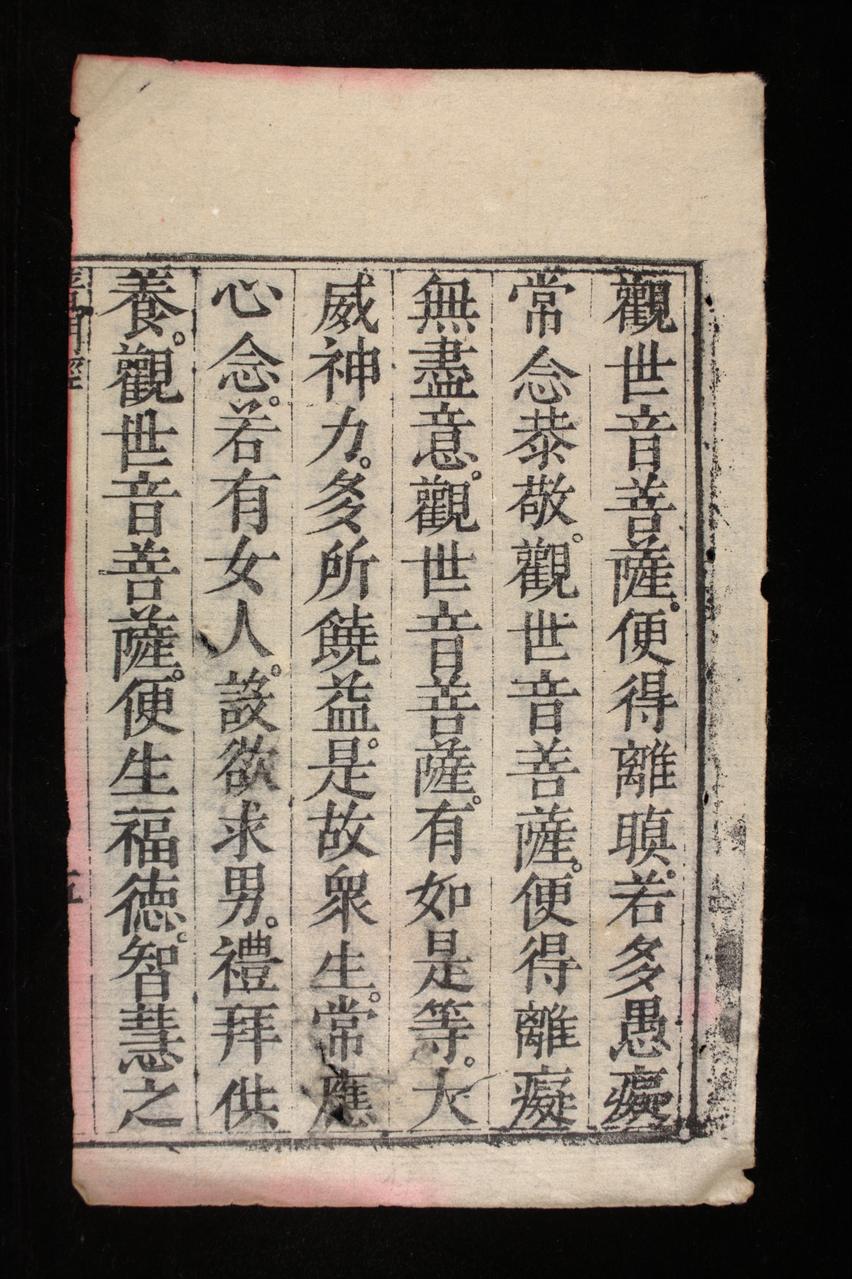 觀世音菩薩。便得離瞋。若多愚癡
常念恭敬。觀世音菩薩。便得離癡
無盡意。觀世音菩薩。有如是等。大
威神力。多所饒益。是故衆生。常應
心念。若有女人。設欲求男。禮拜供
養。觀世音菩薩。便生福德。智慧之